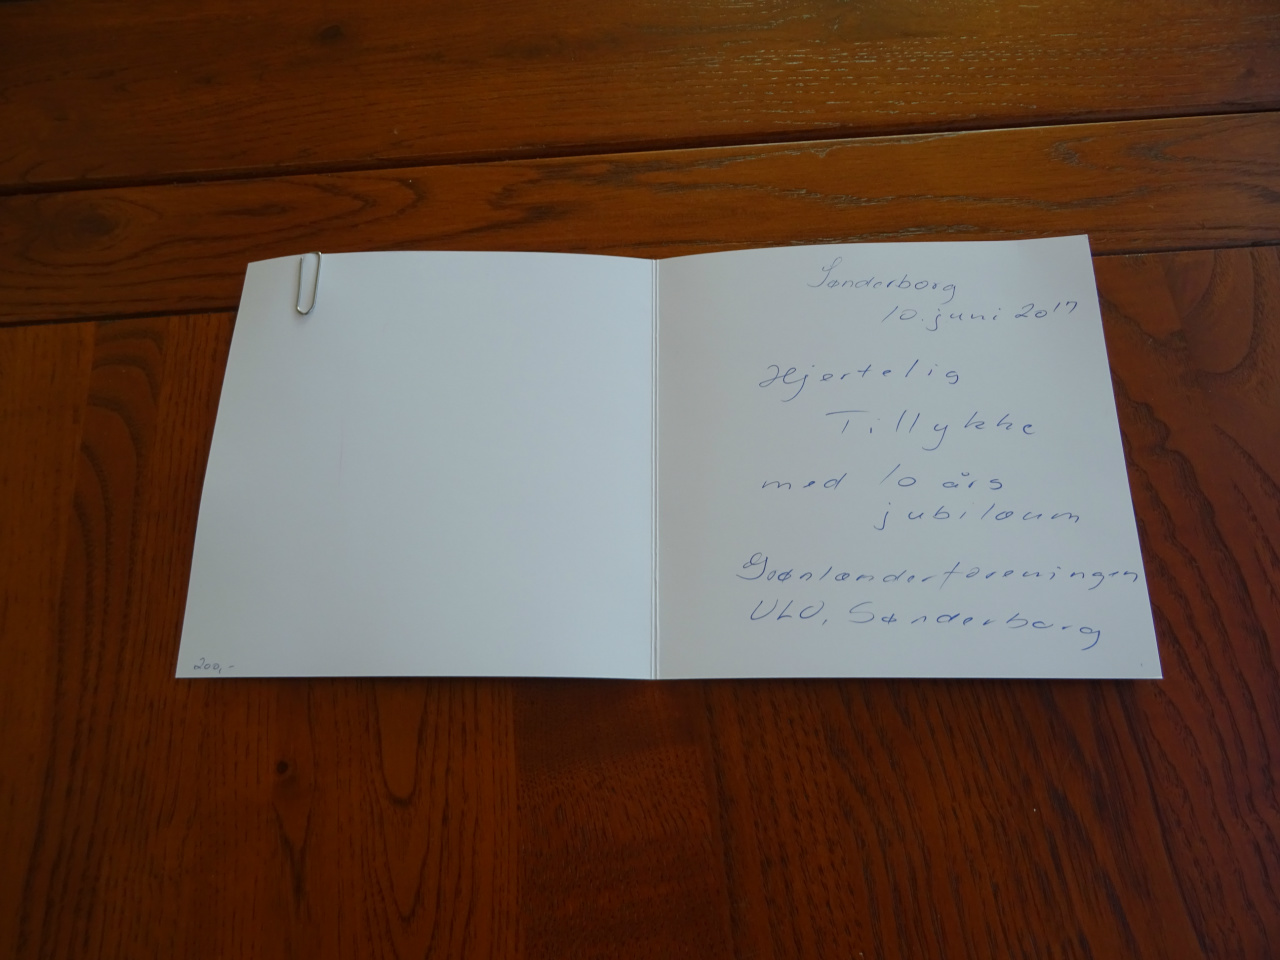 Sønderborg
10. juni 2017
Hjertelig
Tillykke
med 10 års
jubilæum
Grønlænderforeningen
ULO, Sønderborg
200,-